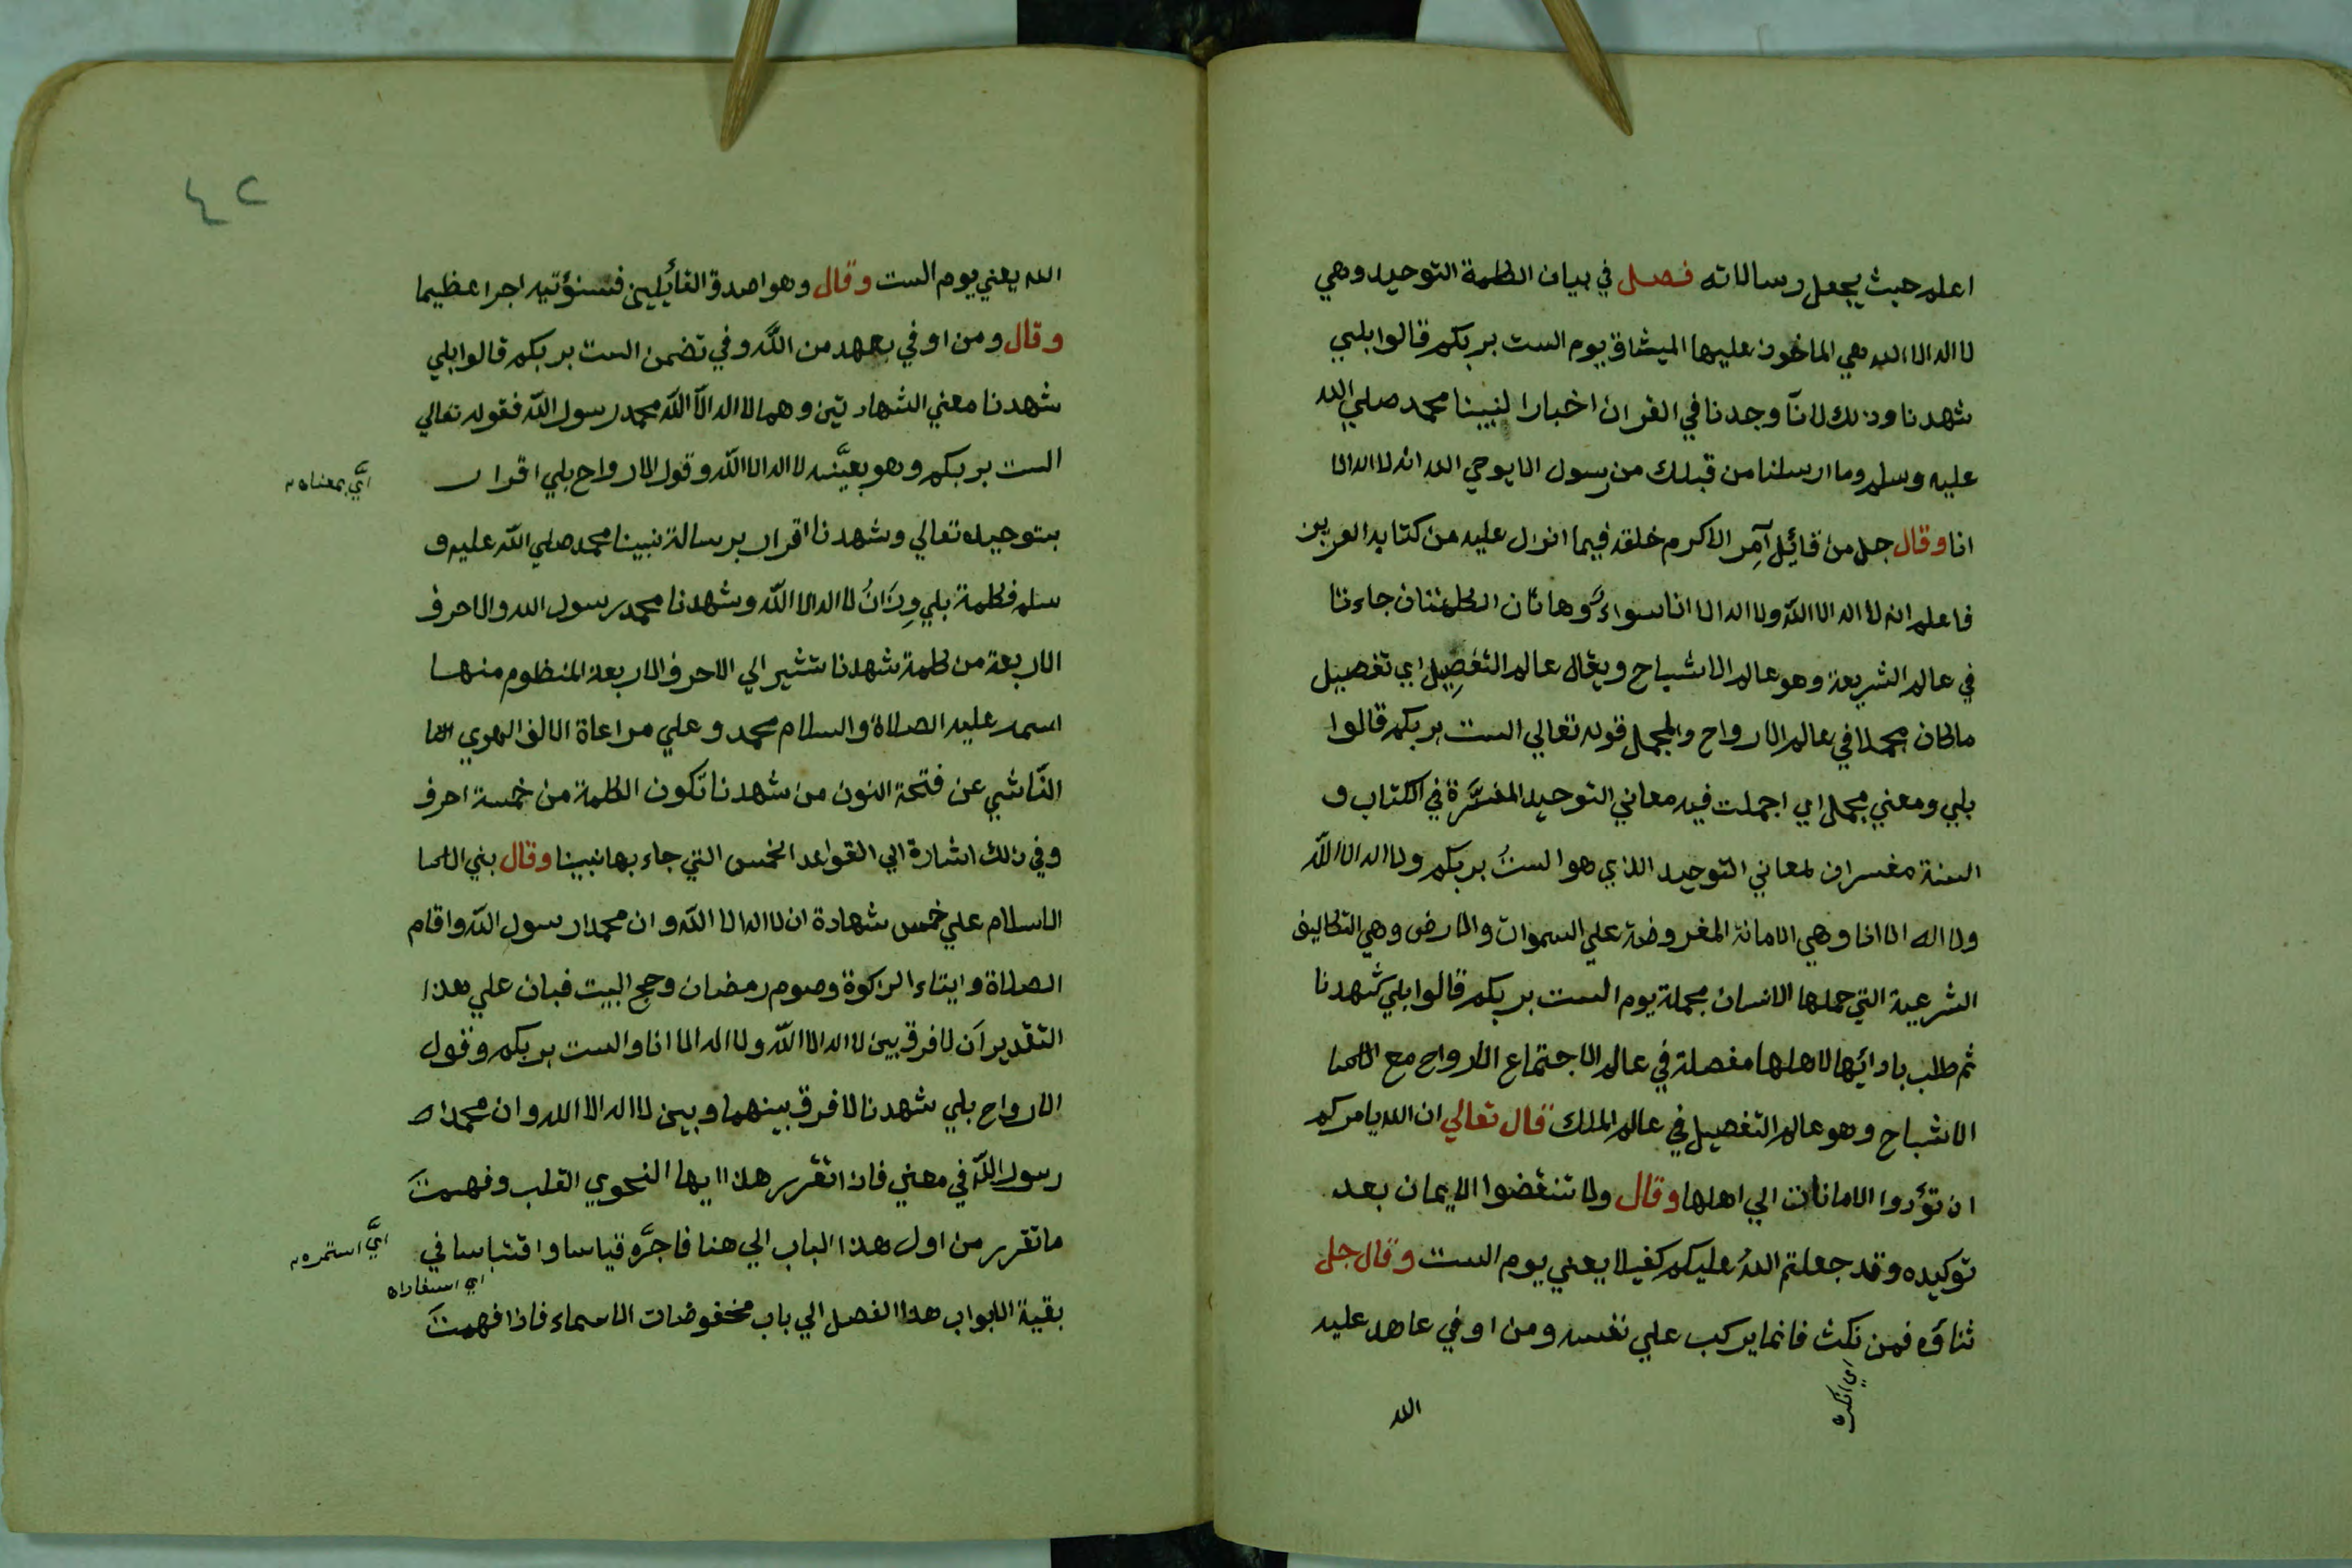 اعلم حيث يجعل رسالاته فصل في بيان الكلمة التوحيد وهي
لا اله الا الله هي الماخوذ عليها الميثاق يوم الست بربكم قالوا بلي
شهدنا وذلك لانا وجدنا في القران اخبارا لنبينا محمد صلي الله
عليه وسلم وما ارسلنا من قبلك من رسول الا يوحي اليه انه لا اله الا
انا وقال جل من قائل آمر الاكرم خلقه فيما انزل عليه من كتابه العزيز
فاعلم انه لا اله الا الله ولا اله الا انا سواء وهاتان الكلمتان جاءتا
في عالم الشريعة وهو عالم الاشباح ويقال عالم التفصيل اي تفصيل
ما كان مجملا في عالم الارواح والمجمل قوله تعالي الست بربكم قالوا
بلي ومعني مجمل اي اجملت فيه معاني التوحيد المفسرة في الكتاب و
السنة مفسران لمعاني التوحيد الذي هو الست بربكم ولا اله الا الله
ولا اله الا انا وهي الامانة المعروضة علي السموات والارض وهي التكاليف
الشرعية التي حملها الانسان مجملة يوم الست بربكم قالوا بلي شهدنا
ثم طلب بادائها لاهلها مفصلة في عالم الاجتماع الارواح مع
الاشباح وهو عالم التفصيل في عالم الملك قال تعالي ان الله يامركم
ان تؤدوا الامانات الي اهلها وقال ولا تنقضوا الايمان بعد
توكيده وقد جعلتم الله عليكم كفيلا يعني يوم الست وقال جل
ثناؤه فمن نكث فانما يركب علي نفسه ومن اوفي عاهد عليه
اي انكره
الله
٤٢
الله يعني يوم الست وقال وهو اصدق القائلين فسنؤتيه اجرا عظيما
وقال ومن اوفي بعهد من الله وفي تضمن الست بربكم قالوا بلي
شهدنا معني الشهادتين وهما لا اله الا الله محمد رسول الله فقوله تعالي
الست بربكم وهو بعينه لا اله الا الله وقول الارواح بلي اقرار
اي بمعناه
بتوحيده تعالي وشهدنا اقرار برسالة نبينا محمد صلي الله عليه و
سلم فكلمة بلي وزان لا اله الا الله وشهدنا محمد رسول الله والاحرف
الاربعة من كلمة شهدنا تشير الي الاحرف الاربعة المنظوم منها
اسمه عليه الصلاة والسلام محمد وعلي مراعاة الالف الهوي
الناشي عن فتحة النون من شهدنا تكون الكلمة من خمسة احرف
وفي ذلك اشارة الي القواعد الخمس التي جاء بها نبينا وقال بني
الاسلام علي خمس شهادة ان لا اله الا الله وان محمدا رسول الله واقام
الصلاة وايتاء الزكوة وصوم رمضان وحج البيت فبان علي هذا
التقدير ان لا فرق بين لا اله الا الله ولا اله الا انا والست بربكم وقول
الارواح بلي شهدنا لا فرق بينهما وبين لا اله الا الله وان محمدا
رسول الله في معني فاذا تقرر هذا ايها النحوي القلب وفهمت
ما تقرر من اول هذا الباب الي هنا فاجره قياسا واقتباسا في
اي استمره
اي استفاده
بقية الابواب هذا الفصل الي باب مخفوضات الاسماء فاذا فهمت